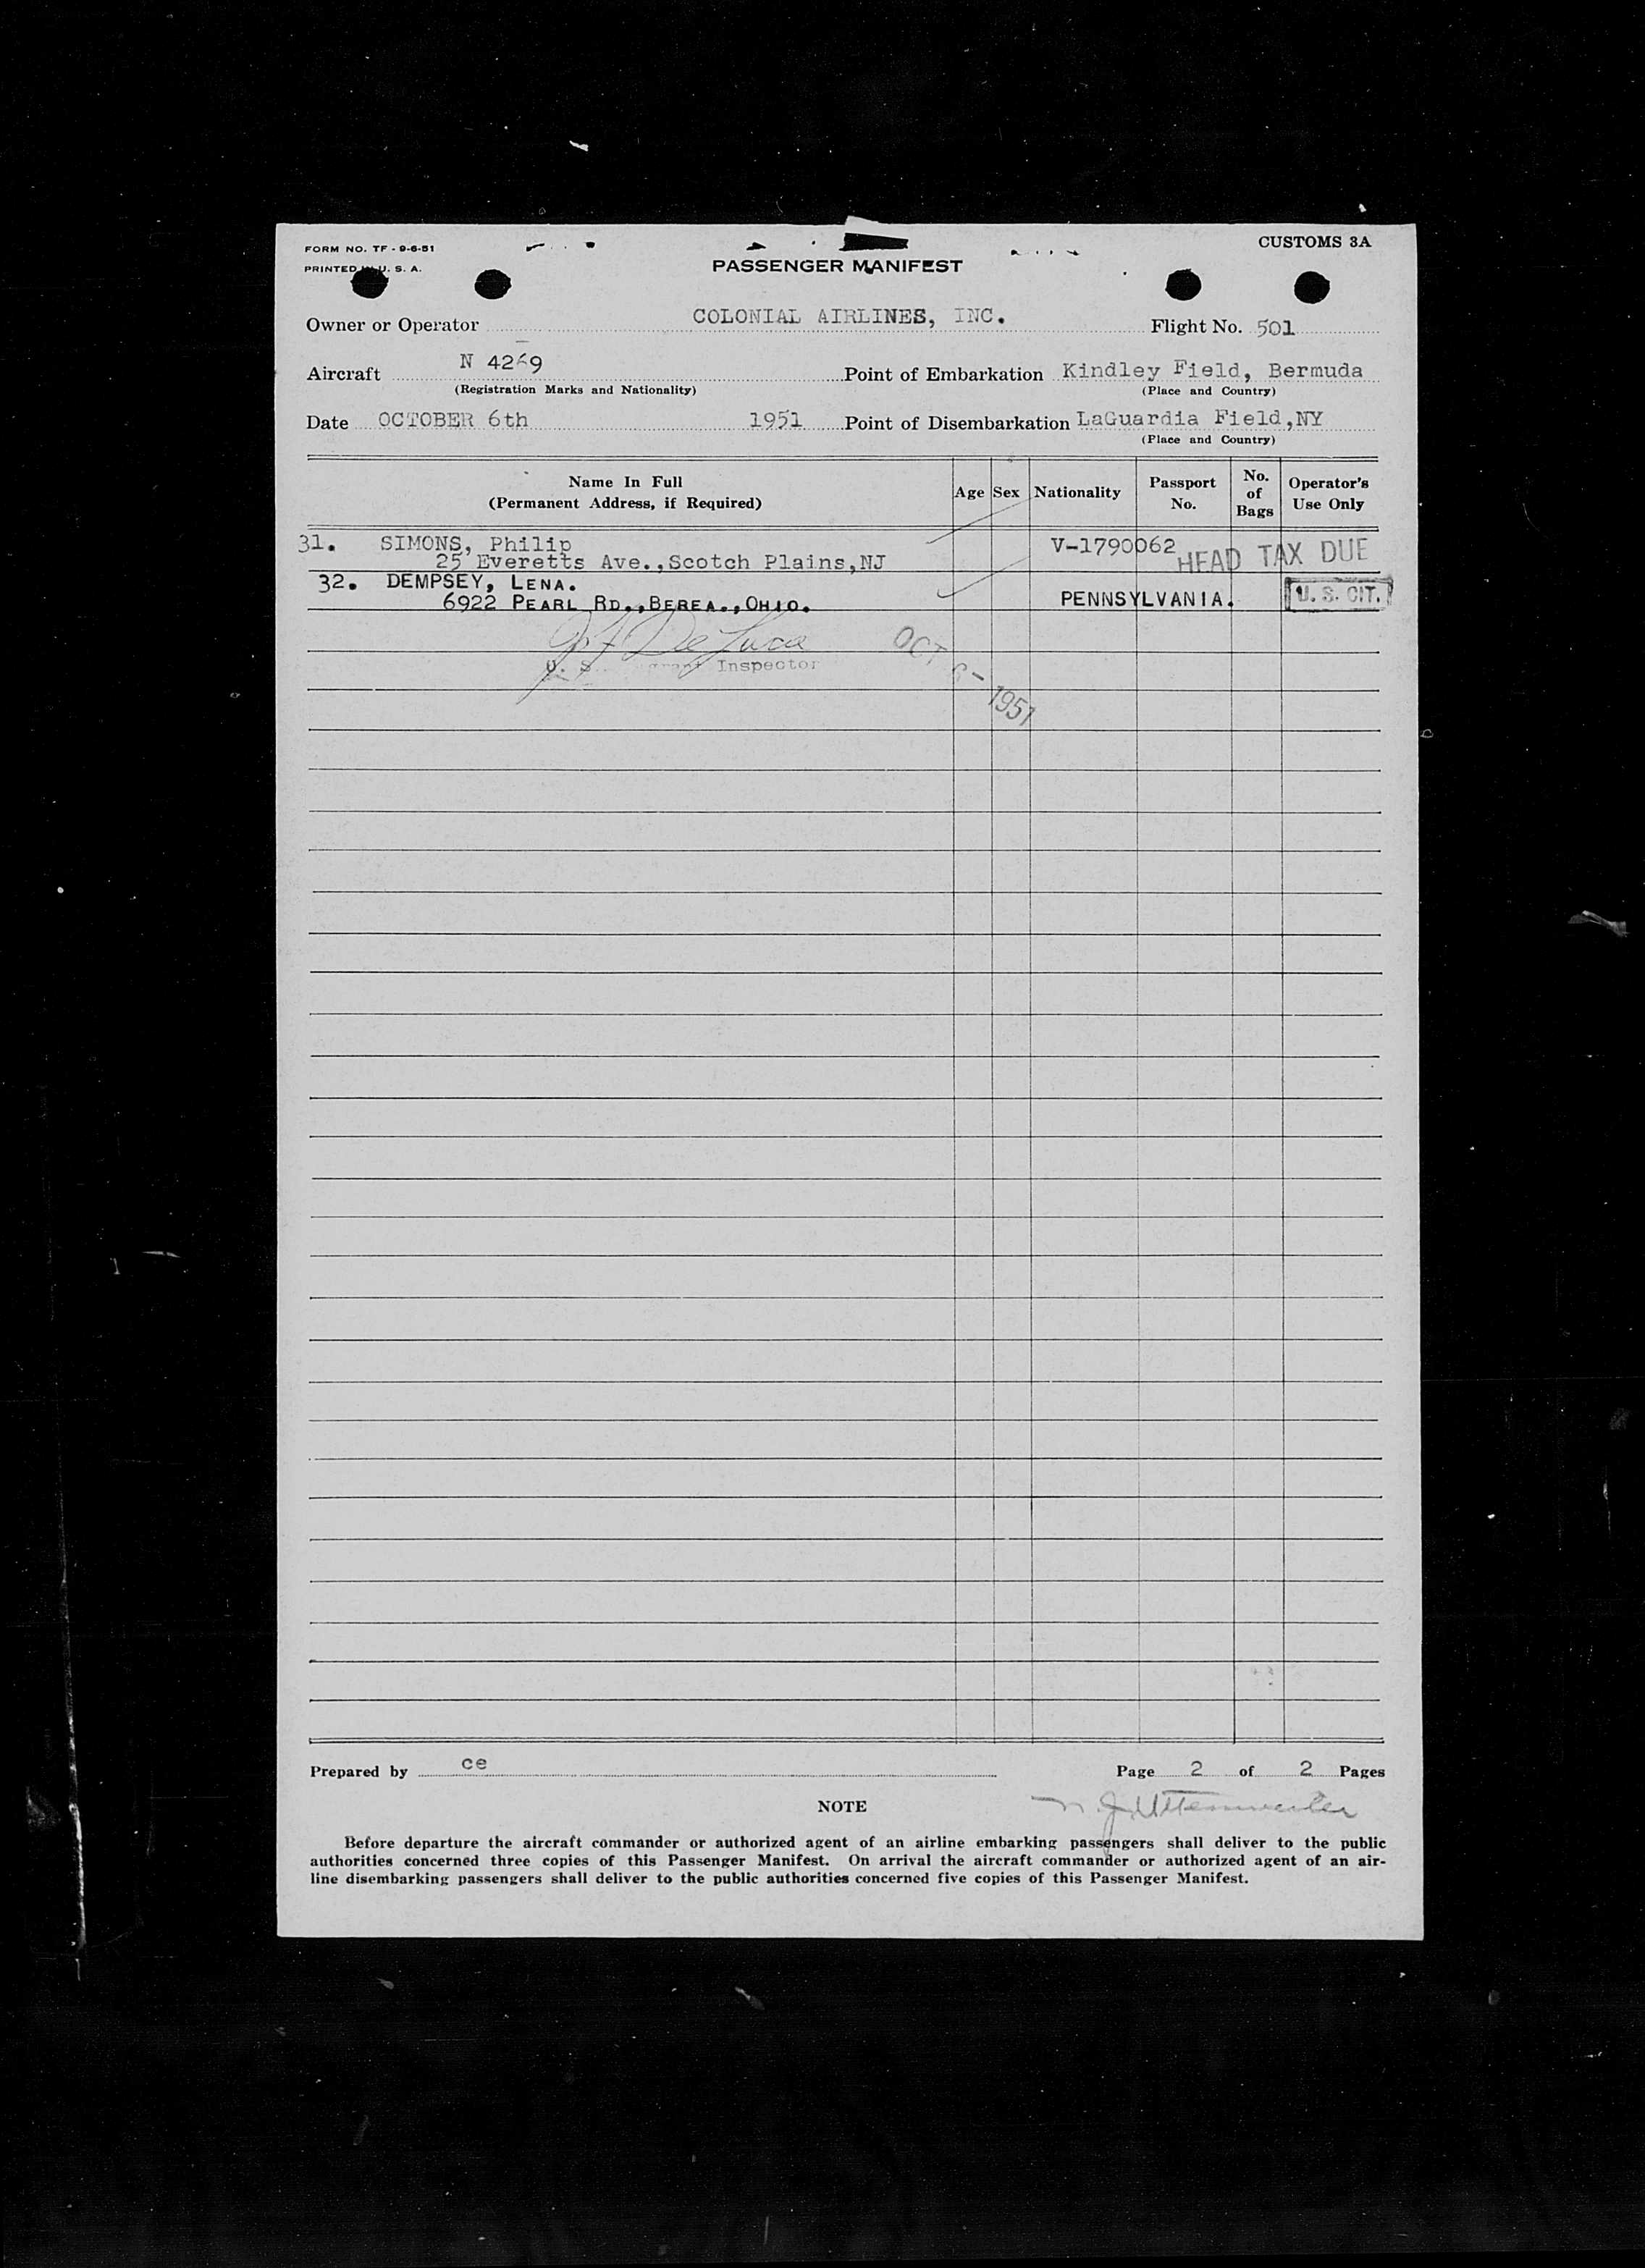 FORM NO. TF - 9-6-51
CUSTOMS 3A
PRINTED IN U. S. A.
PASSENGER MANIFEST
Owner or Operator COLONIAL AIRLINES, INC. Flight No. 501
Aircraft N 4269 Point of Embarkation Kindley Field, Bermuda
(Registration Marks and Nationality) (Place and Country)
Date OCTOBER 6th 1951 Point of Disembarkation LaGuardia Field,NY
(Place and Country)
Name In Full
(Permanent Address, if Required)
Age Sex Nationality
Passport
No.
No.
of
Bags
Operator's
Use Only
31. SIMONS, Philip V-1790062 HEAD TAX DUE
25 Everetts Ave.,Scotch Plains,NJ
32. DEMPSEY, LENA. U. S. CIT.
6922 PEARL RD.,BEREA.,OHIO. PENNSYLVANIA.
De Luca
U. S. Inspector
OCT 6 - 1951
Prepared by ce Page 2 of 2 Pages
NOTE
Before departure the aircraft commander or authorized agent of an airline embarking passengers shall deliver to the public
authorities concerned three copies of this Passenger Manifest. On arrival the aircraft commander or authorized agent of an air-
line disembarking passengers shall deliver to the public authorities concerned five copies of this Passenger Manifest.